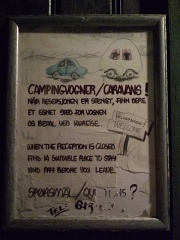 CAMPINGVOGNER/CARAVANS!
NÅR RESEPSJONEN ER STENGT, FINN DERE
ET EGNET STED FOR VOGNEN
OG BETAL VED AVREISE.
WELCOME
WHEN THE RECEPTION IS CLOSED
FIND A SUITABLE PLACE TO STAY
AND PAY BEFORE YOU LEAVE.
SPØRSMÅL /
?